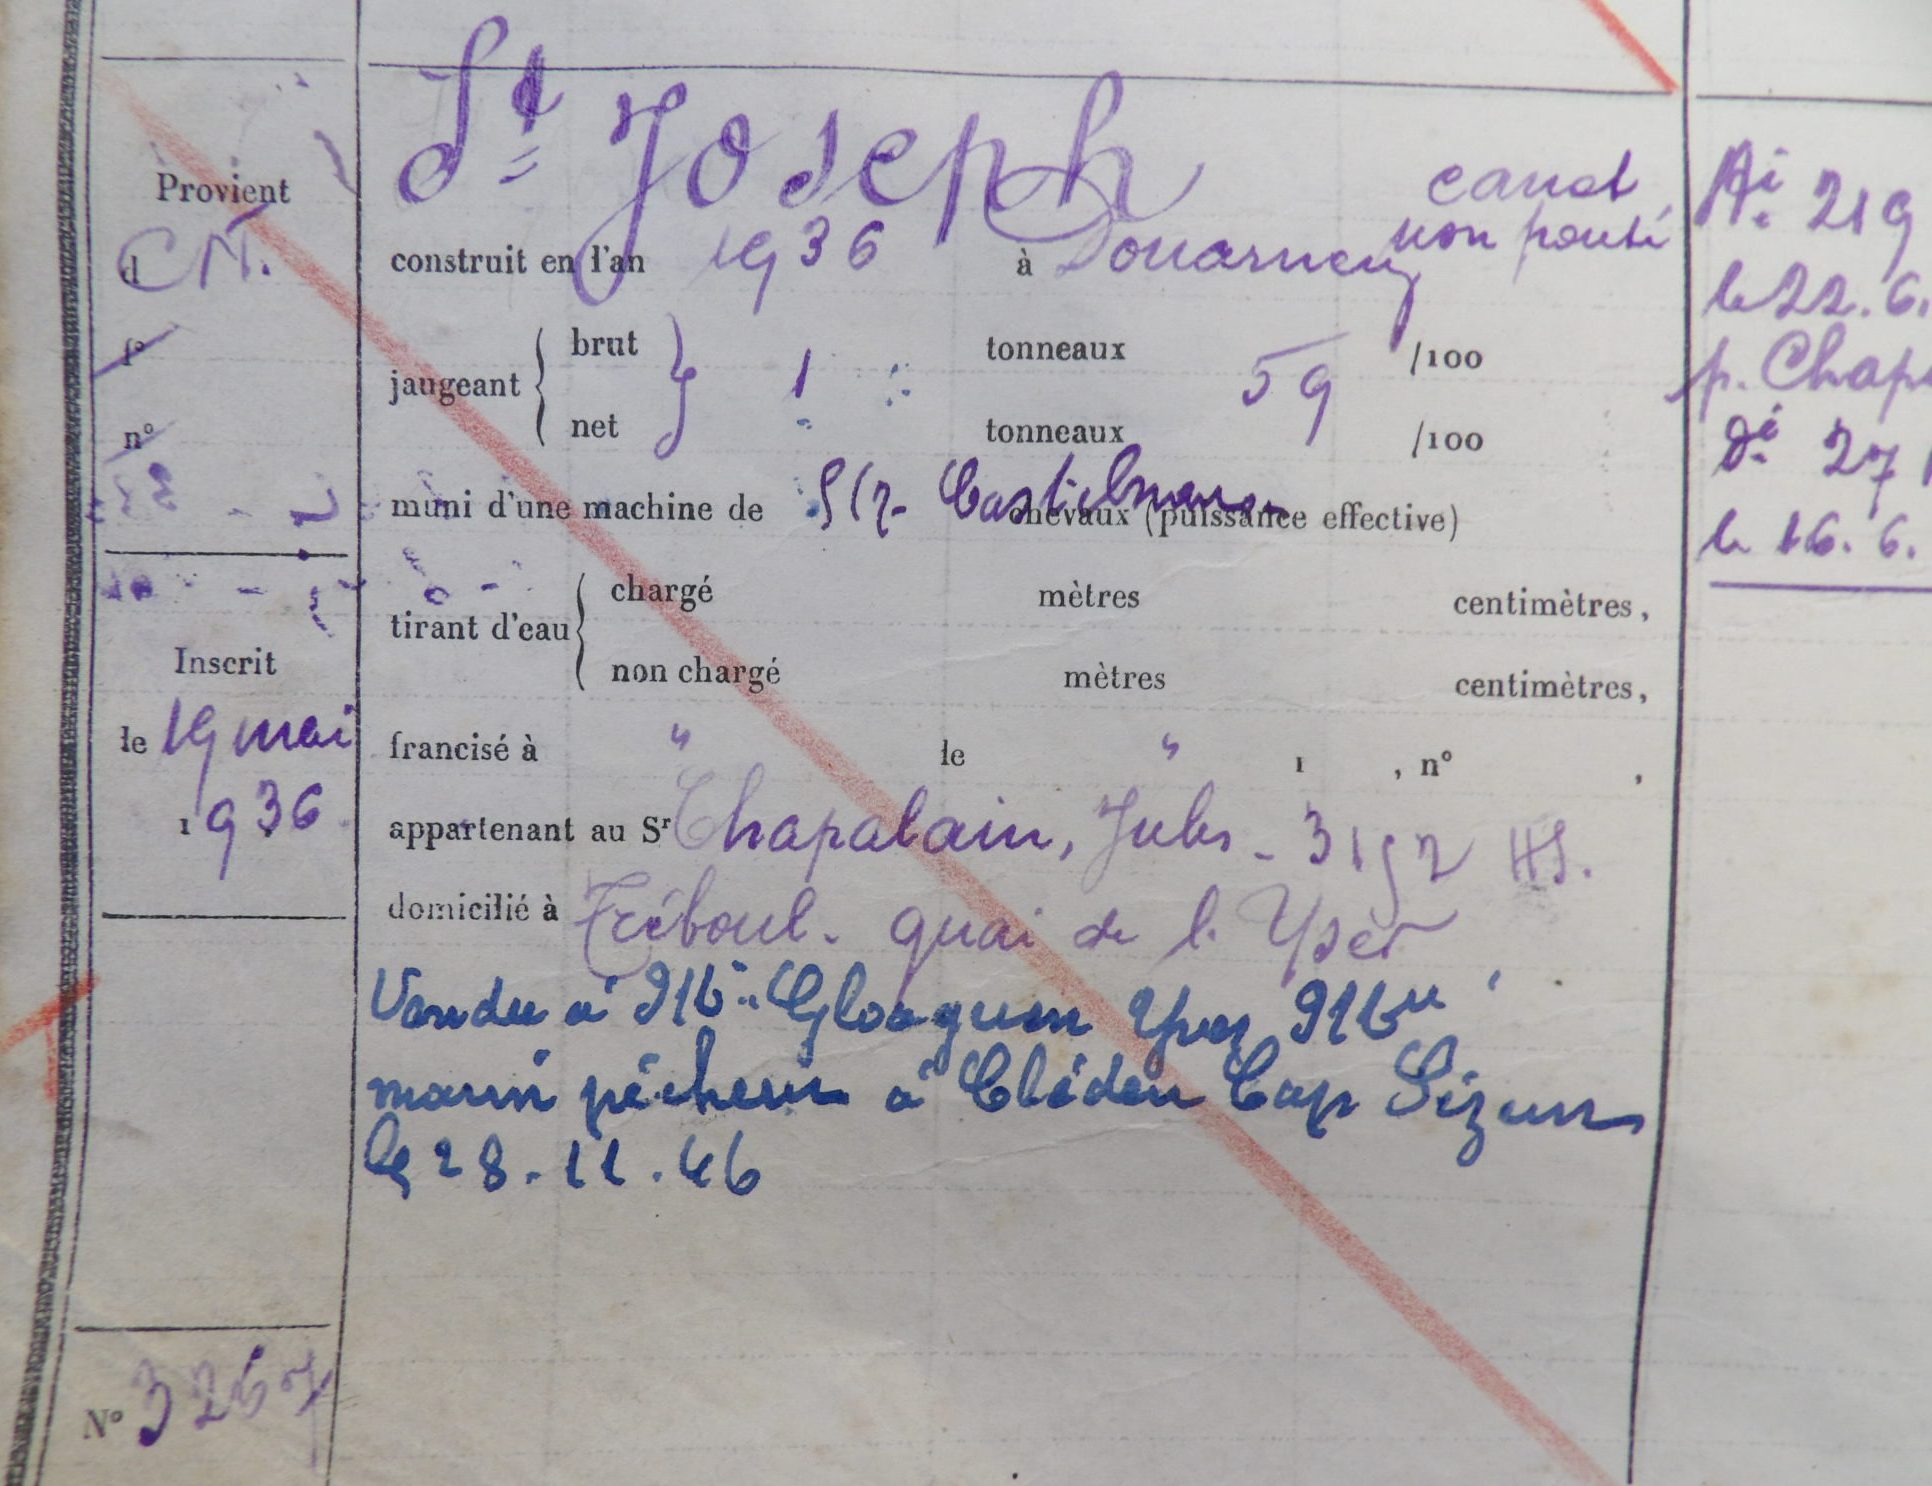 Provient
d CN.
f°
n°
Inscrit
le 19 mai
1936
N° 3267
St Joseph
canot
non ponté
construit en l'an 1936 à Douarnenez
jaugeant { brut } 1 tonneaux 59 /100
net tonneaux /100
muni d'une machine de chevaux (puissance effective)
tirant d'eau { chargé mètres centimètres,
non chargé mètres centimètres,
francisé à " le " 1 , n° ,
appartenant au Sr Chapalain, Jules - 3192 HS.
domicilié à Tréboul - quai de l'Yser
Vendu à Gloaguen Yves
marin pêcheur à Cléden Cap Sizun
le 28.11.46
Ai 219
le 22.6.
p. Chap
Di 27
le 16.6.